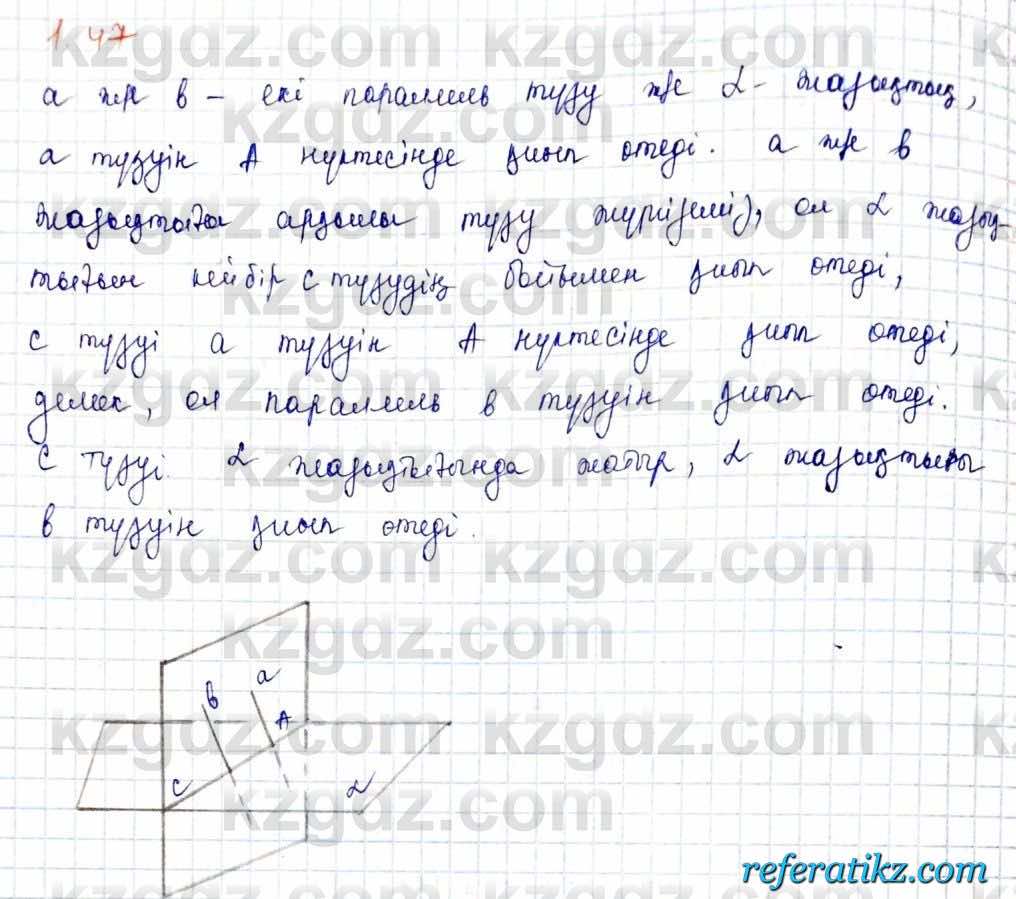 1.47
а жә в – екі параллель түзу же α- жазықтық,
а түзуін А нүктесінде қиып өтеді. а же в
жазықтыға арқылы түзу жүргіземіз, ол α жазық-
тығын кейбір с түзудің бойымен қиып өтеді,
с түзуі а түзуін А нүктесінде қиып өтеді,
демек, ол параллель в түзуін қиып өтеді.
С түзуі. α жазықтығында жатыр, α жазықтығы
в түзуін қиып өтеді.
в а
А
С α
kzgdz.com
referatikz.com